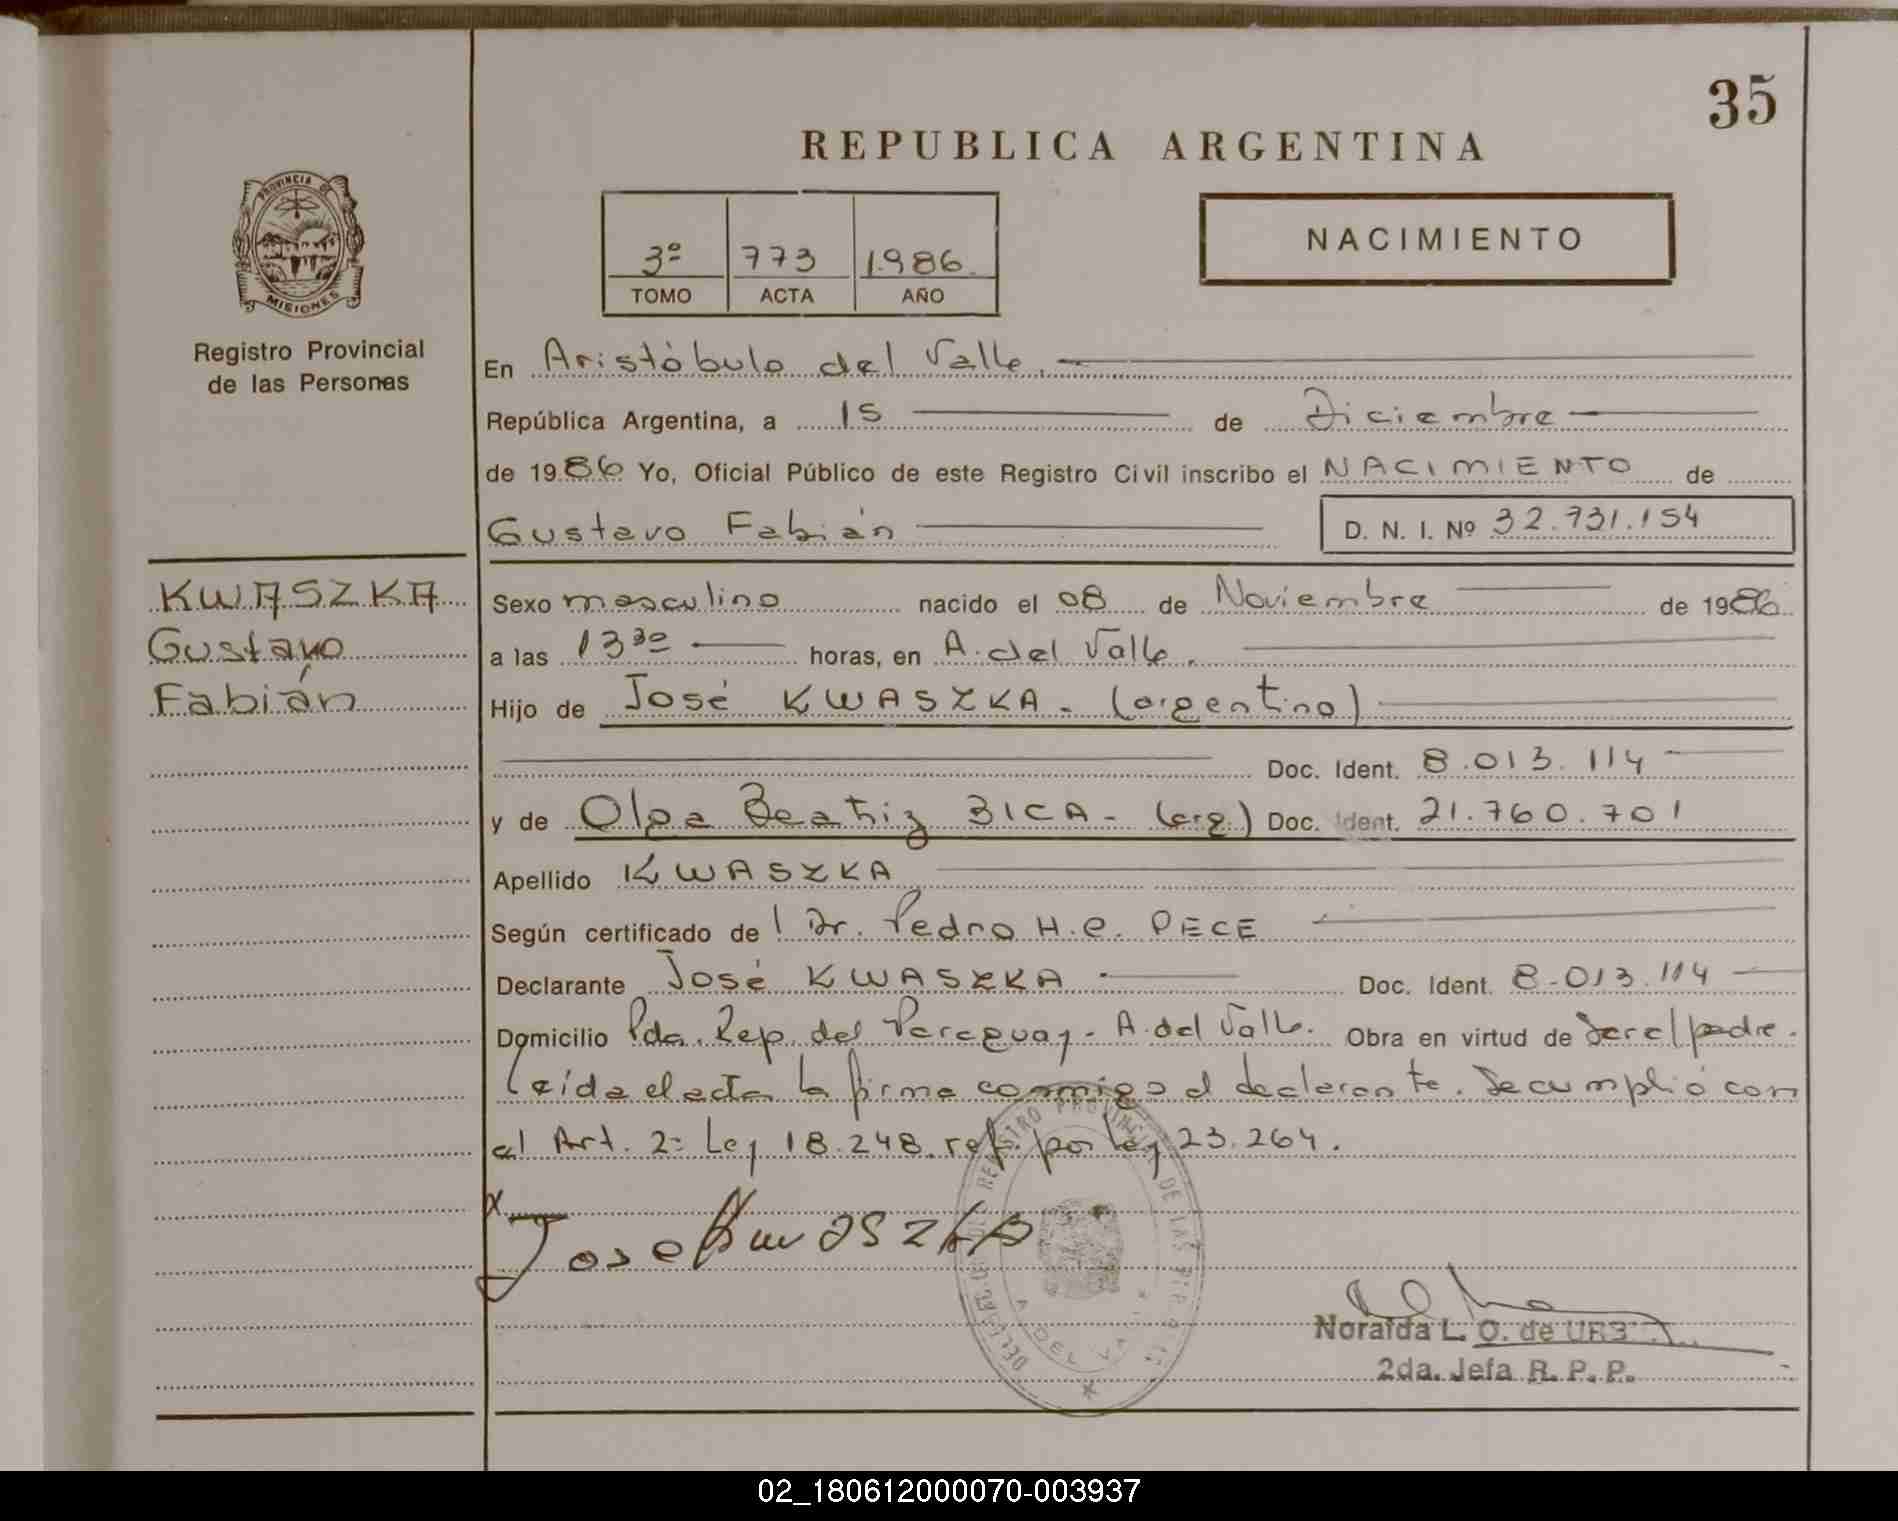 35
REPUBLICA ARGENTINA
PROVINCIA DE
MISIONES
Registro Provincial
de las Personas
3º 773 1.986
TOMO ACTA AÑO
NACIMIENTO
En Aristóbulo del Valle.
República Argentina, a 15 de Diciembre
de 1986 Yo, Oficial Público de este Registro Civil inscribo el NACIMIENTO de
Gustavo Fabián D. N. I. Nº 32.731.154
KWASZKA
Gustavo
Fabián
Sexo masculino nacido el 08 de Noviembre de 1986
a las 13 30 horas, en A. del Valle.
Hijo de José KWASZKA - (argentino)
Doc. Ident. 8.013.114
y de Olga Beatriz BICA - (arg.) Doc. Ident. 21.760.701
Apellido KWASZKA
Según certificado del Dr. Pedro H.C. PECE
Declarante José KWASZKA - Doc. Ident. 8.013.114
Domicilio Pda. Rep. del Paraguay - A. del Valle. Obra en virtud de ser el padre.
Leída el acta la firma conmigo el declarante. Se cumplió con
el Art. 2º Ley 18.248. ref. por ley 23.264.
x
Jose Kwaszka
REGISTRO PROVINCIAL DE LAS
A. DEL VALLE
Noraida L. O. de
2da. Jefa R. P. P.
02_180612000070-003937